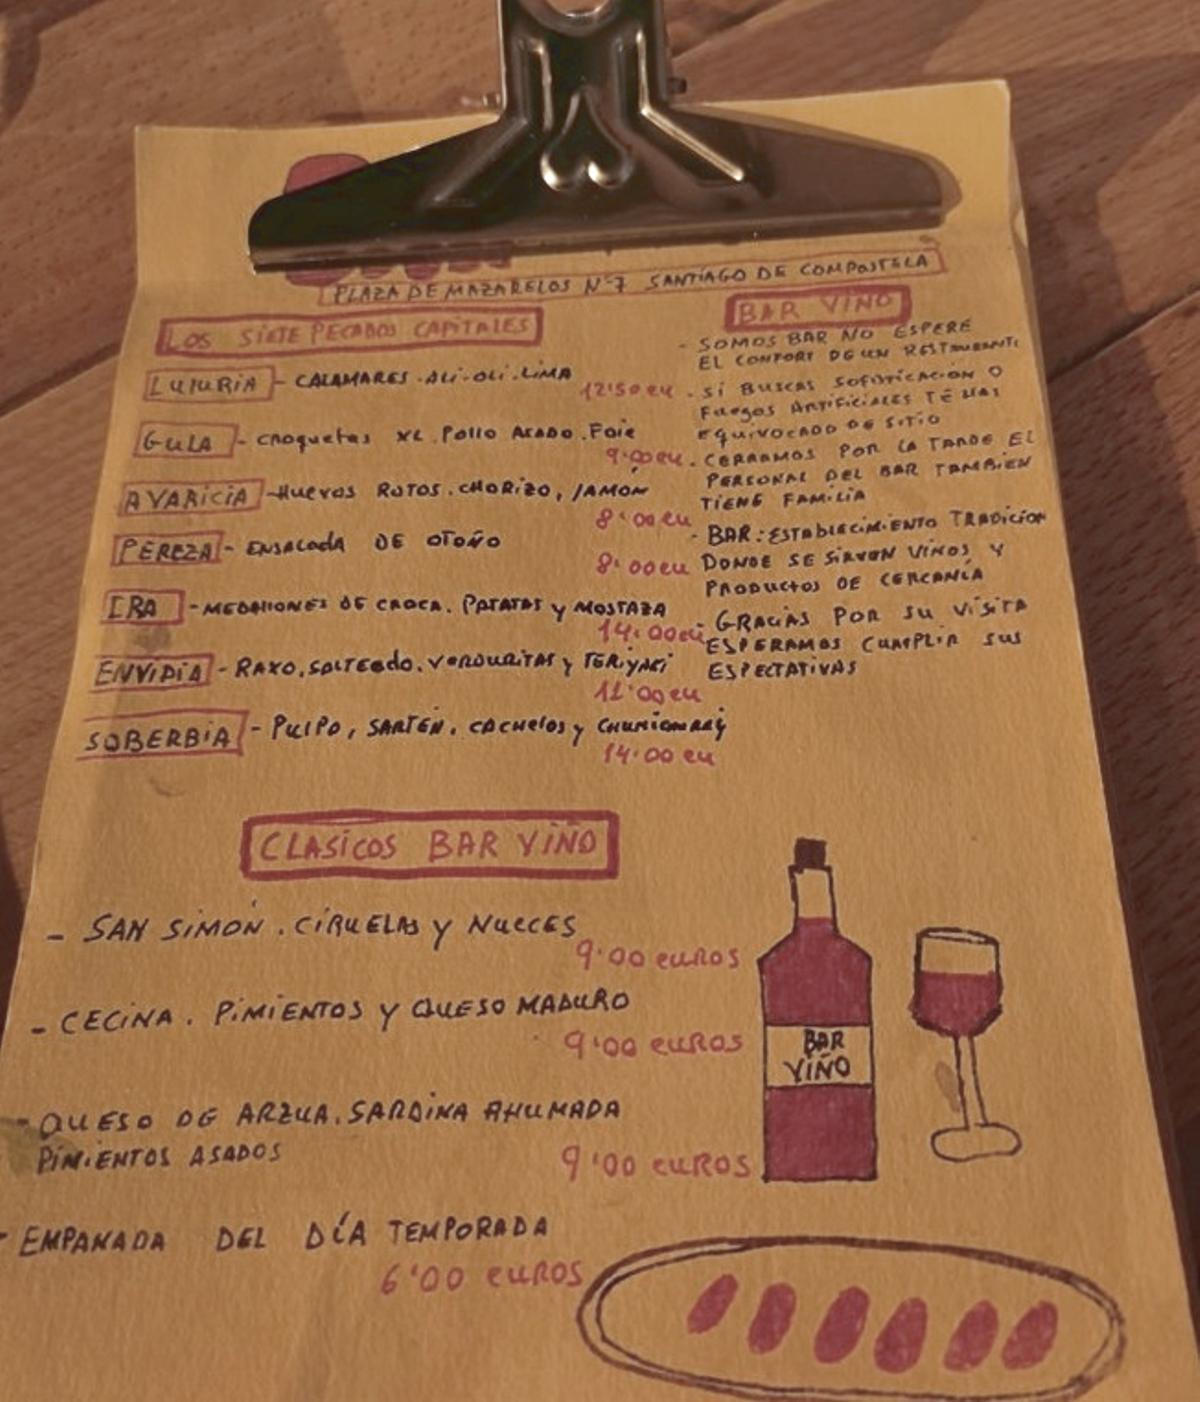 PLAZA DE MAZARELOS Nº7 SANTIAGO DE COMPOSTELA
LOS SIETE PECADOS CAPITALES
LUJURIA - CALAMARES. ALI-OLI. LIMA
12'50 eu
GULA - CROQUETAS XL. POLLO ASADO. FOIE
9'00 eu
AVARICIA - HUEVOS ROTOS. CHORIZO, JAMÓN
8'00 eu
PEREZA - ENSALADA DE OTOÑO
8'00 eu
IRA - MEDALLONES DE CROCA. PATATAS Y MOSTAZA
14'00 eu
ENVIDIA - RAXO, SALTEADO. VERDURITAS Y TERIYAKI
11'00 eu
SOBERBIA - PULPO, SARTÉN. CACHELOS Y
14'00 eu
BAR VIÑO
- SOMOS BAR NO ESPERE
EL CONFORT DE UN RESTAURANTE
. SI BUSCAS SOFISTICACION O
FUEGOS ARTIFICIALES TE HAS
EQUIVOCADO DE SITIO
. CERRAMOS POR LA TARDE EL
PERSONAL DEL BAR TAMBIEN
TIENE FAMILIA
- BAR: ESTABLECIMIENTO TRADICION
DONDE SE SIRVEN VINOS Y
PRODUCTOS DE CERCANÍA
- GRACIAS POR SU VISITA
ESPERAMOS CUMPLIR SUS
ESPECTATIVAS
CLASICOS BAR VIÑO
- SAN SIMÓN. CIRUELAS Y NUECES
9'00 EUROS
- CECINA. PIMIENTOS Y QUESO MADURO
9'00 EUROS
- QUESO DE ARZUA. SARDINA AHUMADA
PIMIENTOS ASADOS
9'00 EUROS
- EMPANADA DEL DÍA TEMPORADA
6'00 EUROS
BAR
VIÑO